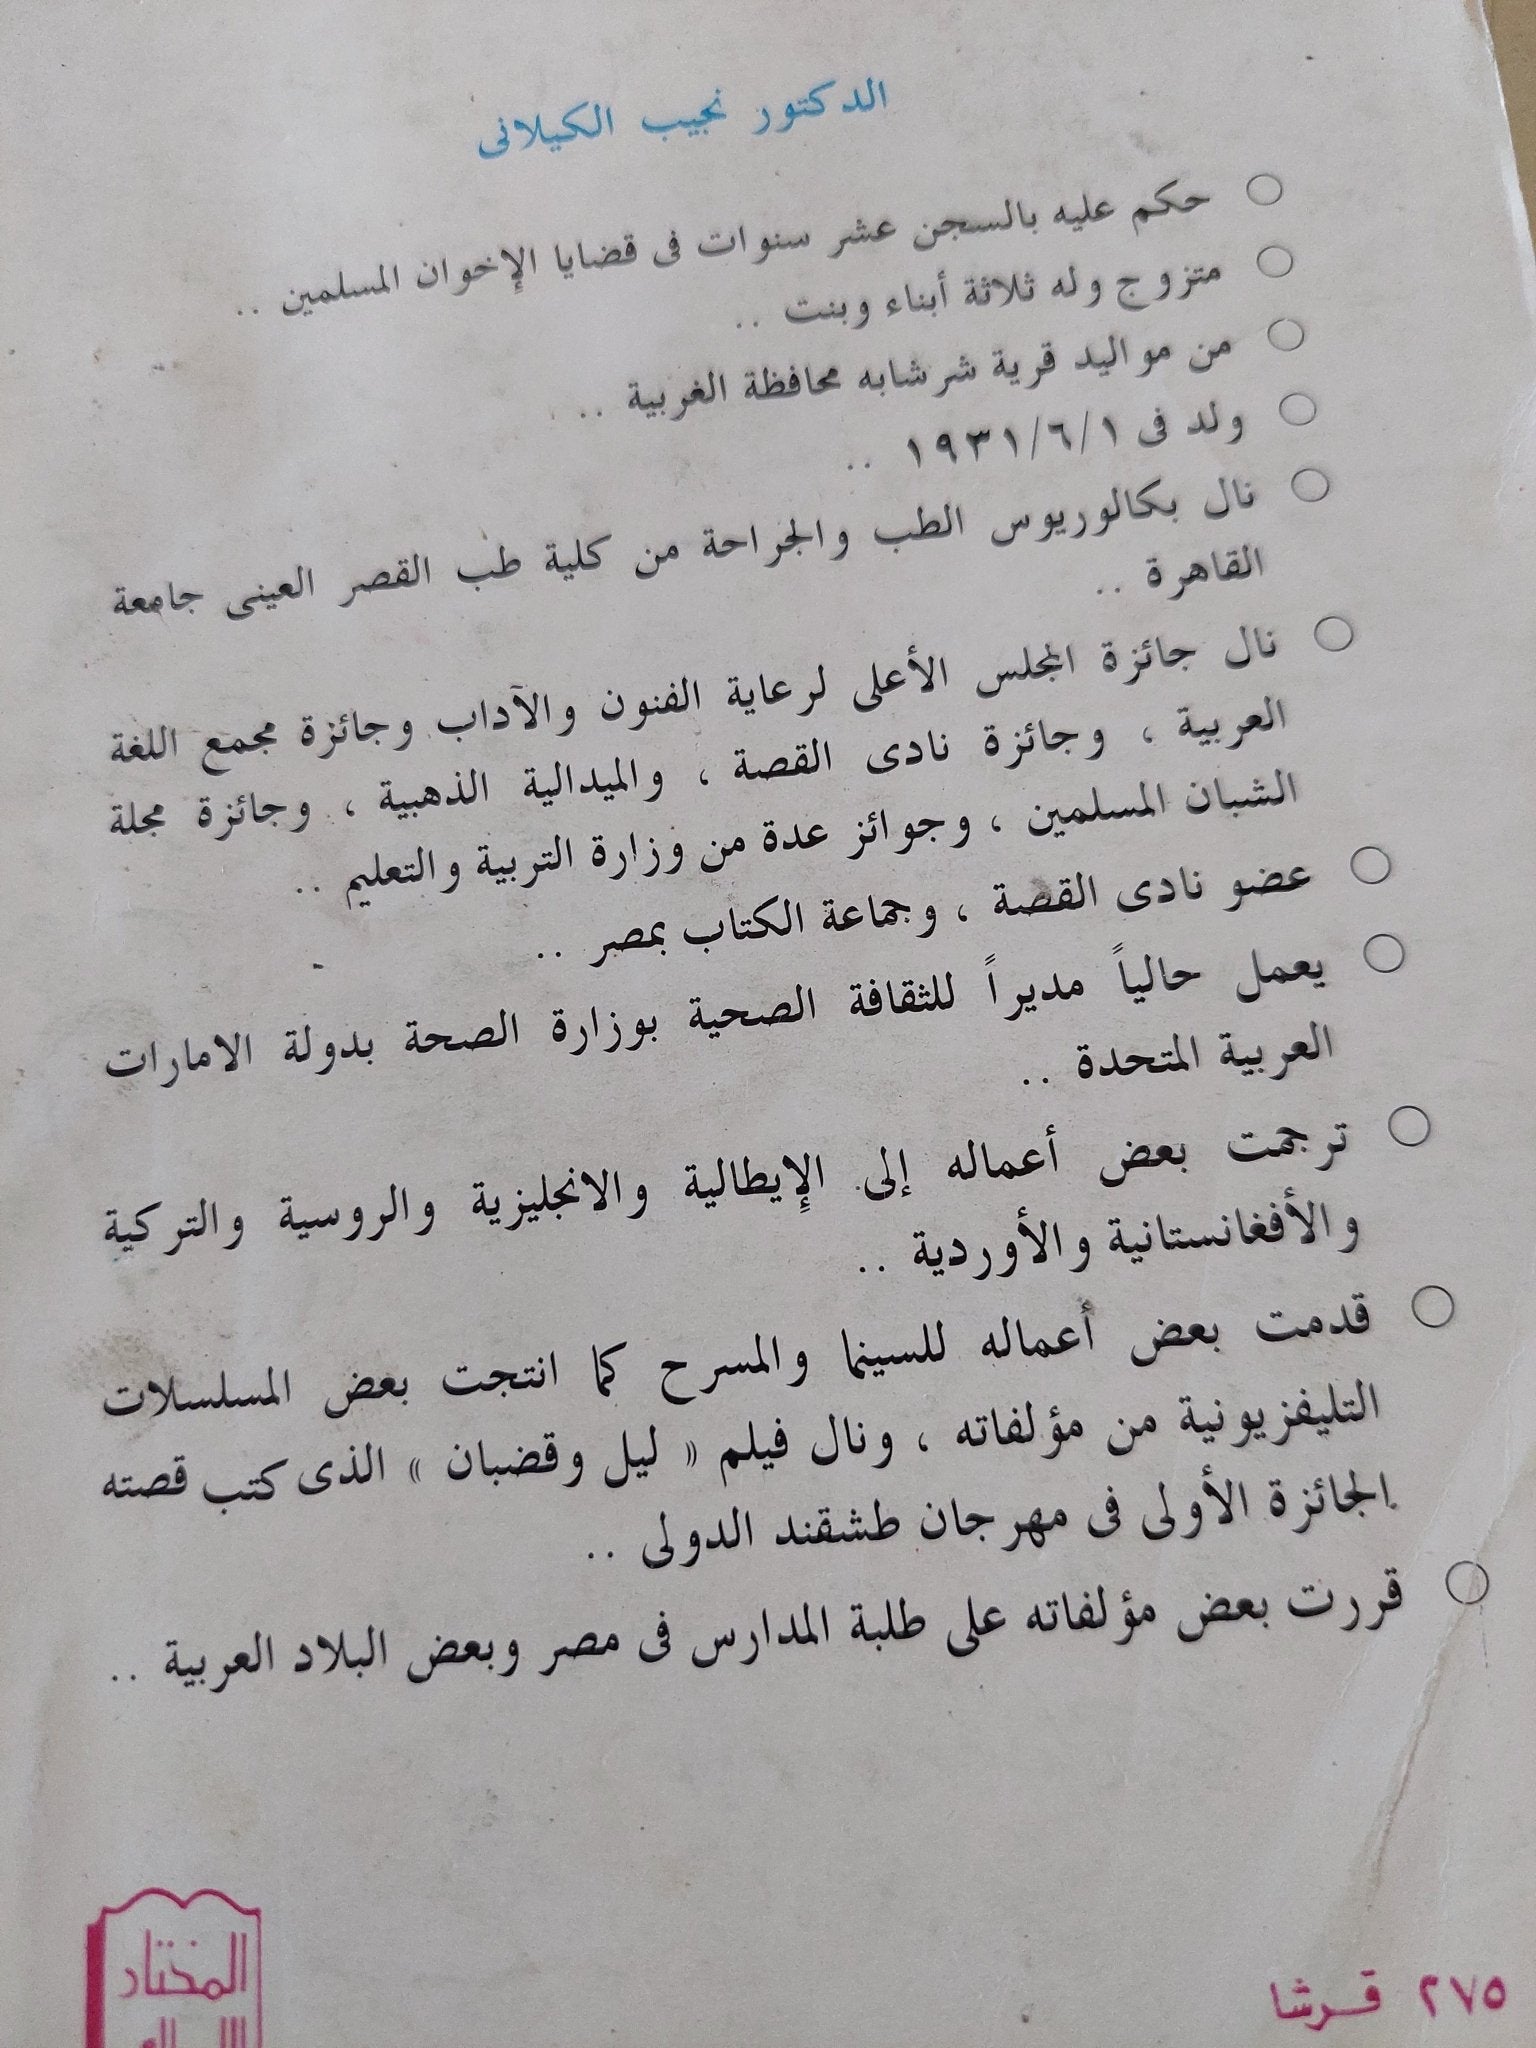 الدكتور نجيب الكيلانى
○ حكم عليه بالسجن عشر سنوات فى قضايا الإخوان المسلمين ..
○ متزوج وله ثلاثة أبناء وبنت ..
○ من مواليد قرية شرشابه محافظة الغربية ..
○ ولد فى ١/٦/١٩٣١ ..
○ نال بكالوريوس الطب والجراحة من كلية طب القصر العينى جامعة
القاهرة ..
○ نال جائزة المجلس الأعلى لرعاية الفنون والآداب وجائزة مجمع اللغة
العربية ، وجائزة نادى القصة ، والميدالية الذهبية ، وجائزة مجلة
الشبان المسلمين ، وجوائز عدة من وزارة التربية والتعليم ..
○ عضو نادى القصة ، وجماعة الكتاب بمصر ..
○ يعمل حالياً مديراً للثقافة الصحية بوزارة الصحة بدولة الامارات
العربية المتحدة ..
○ ترجمت بعض أعماله إلى الإيطالية والانجليزية والروسية والتركية
والأفغانستانية والأوردية ..
○ قدمت بعض أعماله للسينما والمسرح كما انتجت بعض المسلسلات
التليفزيونية من مؤلفاته ، ونال فيلم « ليل وقضبان » الذى كتب قصته
الجائزة الأولى فى مهرجان طشقند الدولى ..
○ قررت بعض مؤلفاته على طلبة المدارس فى مصر وبعض البلاد العربية ..
المختار
٢٧٥ قرشا